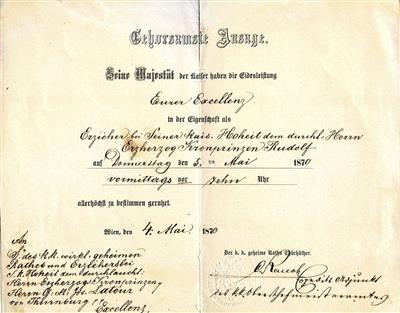 Gehorsamste Ansage.
Seine Majestät der Kaiser haben die Eidesleistung
Eurer Excellenz
in der Eigenschaft als
Erzieher bei Seiner kais. Hoheit dem durchl. Herrn
Erzherzog Kronprinzen Rudolf
auf Donnerstag den 5. ten Mai 1870
vormittags vor zehn Uhr
allerhöchst zu bestimmen geruhet.
Wien, den 4. Mai 1870
An
Sr des k.k. wirkl. geheimen
Rathes und Erziehers bei
S. k. Hoheit dem durchlaucht:
Herrn Erzherzog Kronprinzen,
Herrn G. M. Jos. Latour
von Thurnburg
Excellenz
Der k. k. geheime Raths Thürhüther:
des k.k. Obersthofmeisteramtes